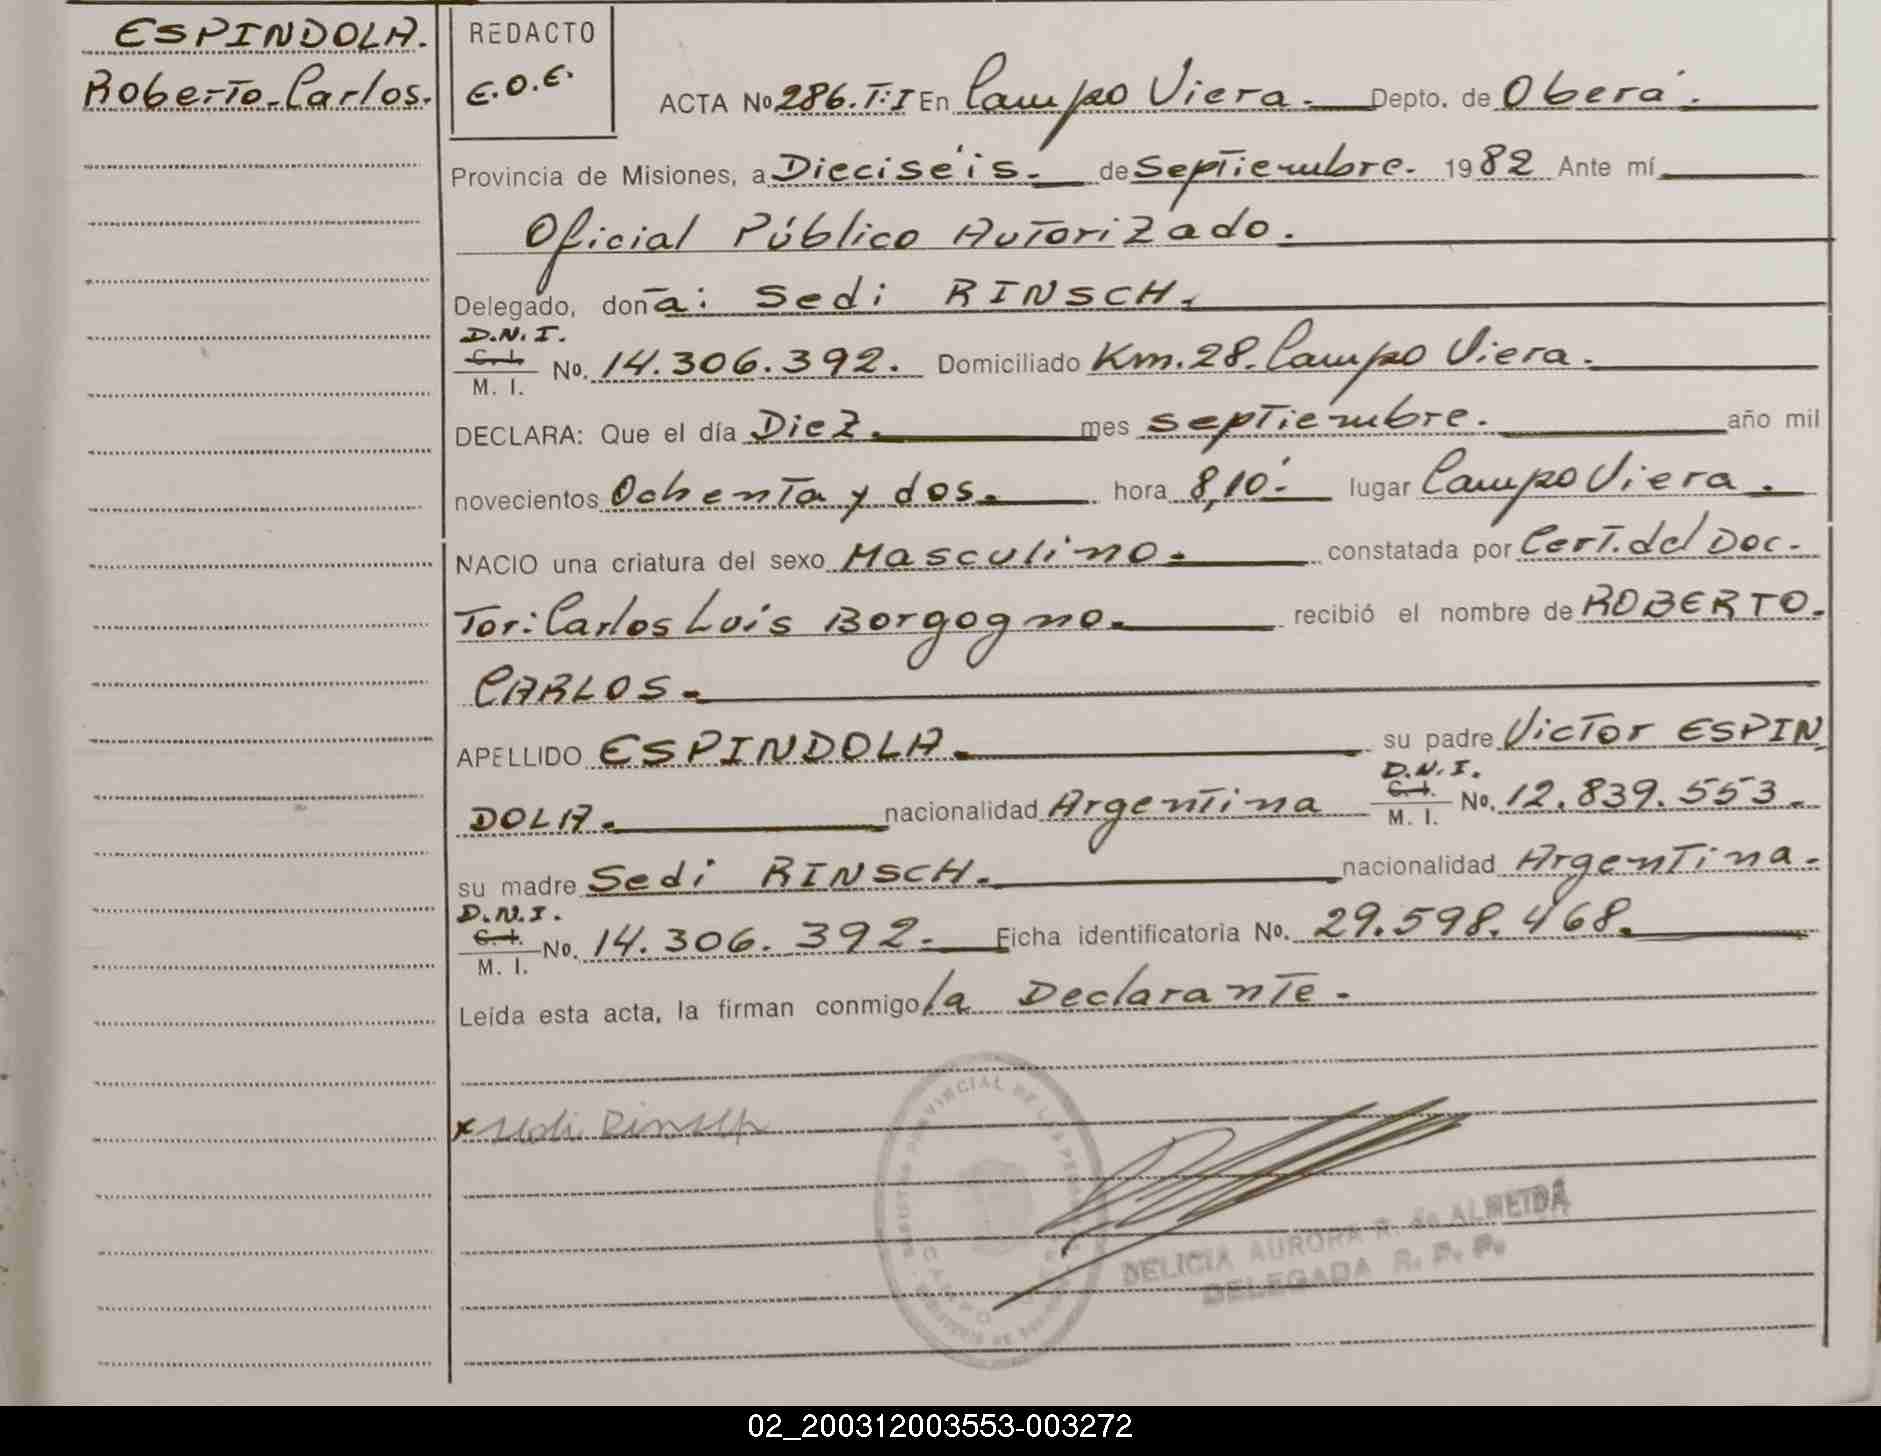 ESPINDOLA.
Roberto Carlos.
REDACTO
E.O.E.
ACTA No 286.T:I En Campo Viera. Depto. de Oberá.
Provincia de Misiones, a Dieciséis. de Septiembre. 1982 Ante mí
Oficial Público Autorizado.
Delegado, doña: Sedi RINSCH.
D.N.I.
C. I.
M. I.
No. 14.306.392. Domiciliado Km.28. Campo Viera.
DECLARA: Que el día Diez. mes septiembre. año mil
novecientos Ochenta y dos. hora 8,10. lugar Campo Viera.
NACIO una criatura del sexo Masculino. constatada por Cert. del Doc-
Tor: Carlos Luis Borgogno. recibió el nombre de ROBERTO.
CARLOS.
APELLIDO ESPINDOLA. su padre Victor ESPIN
D.N.I.
C. I.
M. I.
DOLA. nacionalidad Argentina No. 12.839.553.
su madre Sedi RINSCH. nacionalidad Argentina.
D.N.I.
C. I.
M. I.
No. 14.306.392. Ficha identificatoria No. 29.598.468.
Leída esta acta, la firman conmigo la Declarante.
x Sedi Rinsch
DELICIA AURORA R. de ALMEIDA
DELEGADA R. P. P.
02_200312003553-003272